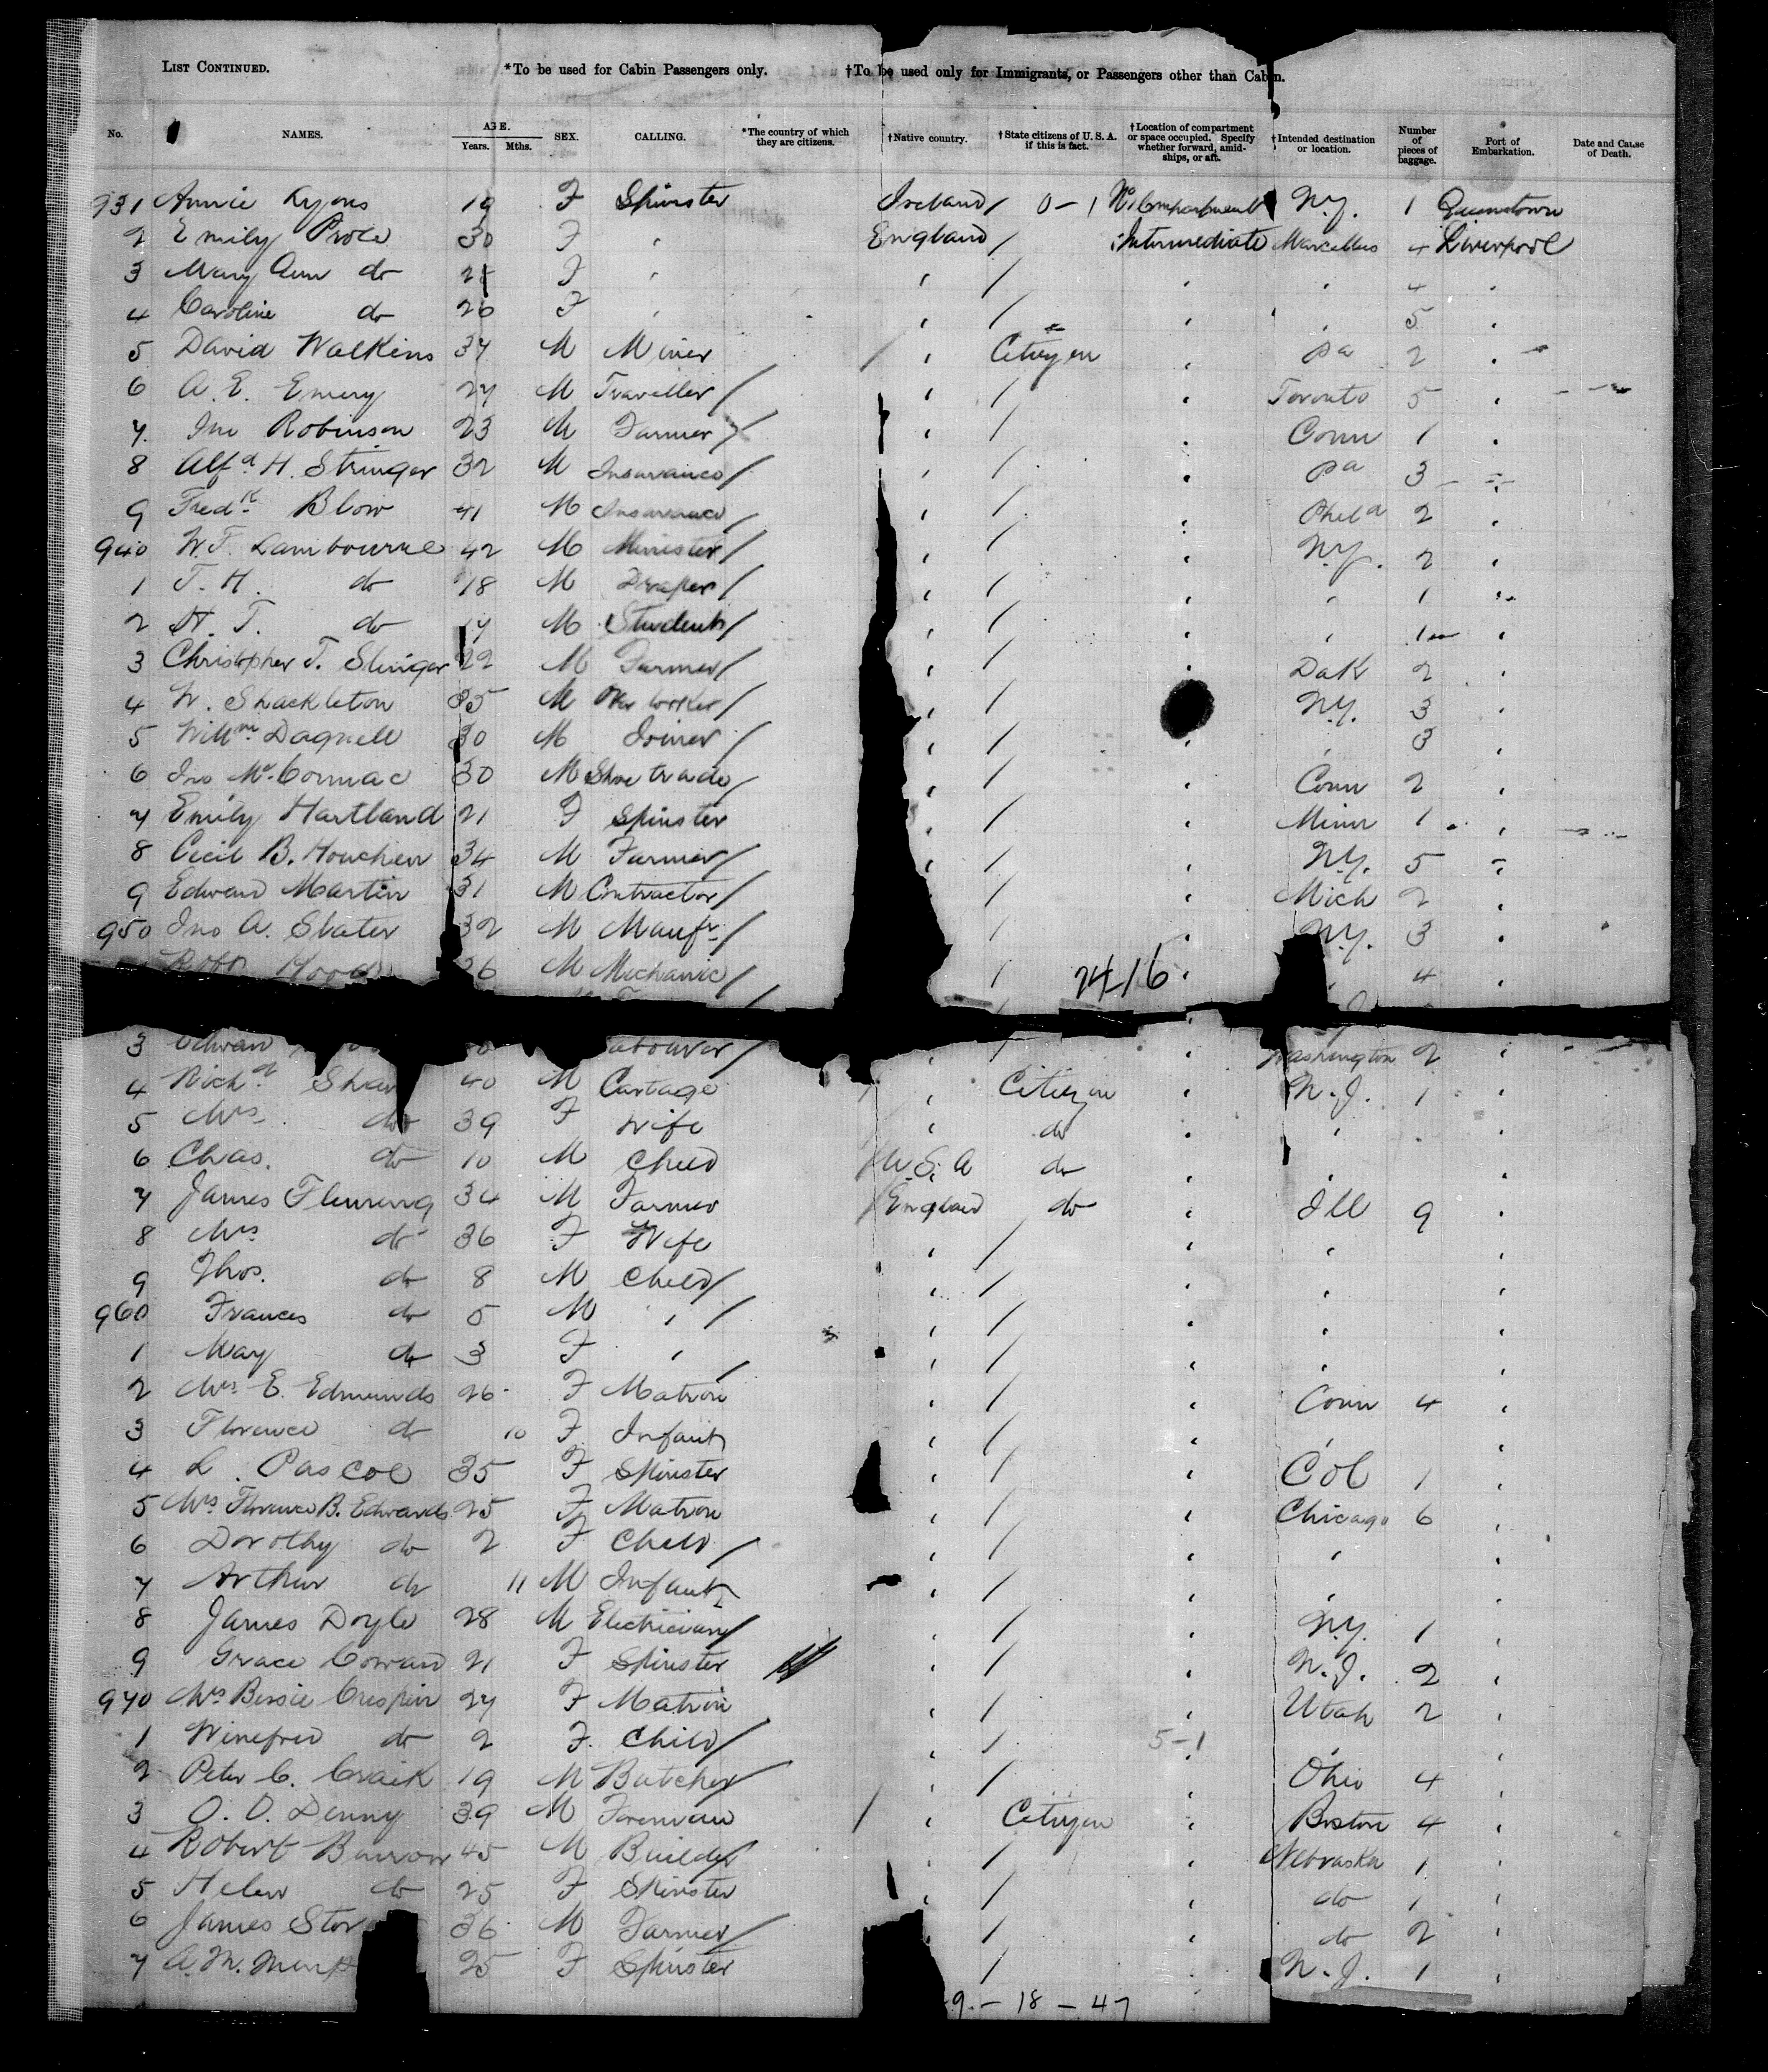 LIST CONTINUED. *To be used for Cabin Passengers only. †To be used only for Immigrants, or Passengers other than Cabin.
No. NAMES. AGE. Years. Mths. SEX. CALLING. *The country of which they are citizens. †Native country. †State citizens of U. S. A. if this is fact. †Location of compartment or space occupied. Specify whether forward, amidships, or aft. †Intended destination or location. Number of pieces of baggage. Port of Embarkation. Date and Cause of Death.
931 Annie Lyons 19 F Spinster Ireland / 0-1 No 1 Compartment N.Y. 1 Queenstown
2 Emily 30 F " England / Intermediate Marcellus 4 Liverpool
3 Mary Ann do F " " / " " 4 "
4 Caroline do 26 F " " / " " 5 "
5 David Watkins 37 M Miner / " Citizen " Pa 2 "
6 A. E. Emery 27 M Traveller / " / " Toronto 5 "
7. Jno Robinson 23 M Farmer / " / " Conn 1 "
8 Alfd H. Stringer 32 M Insurance / " / " Pa 3 "
9 Fredk Blow 41 M Insurance / " / " Phila 2 "
940 W. F. Lambourne 42 M Minister / " / " N.Y. 2 "
1 T. H. do 18 M Draper / " / " " 1 "
2 H. T. do 17 M Student / " / " " 1 "
3 Christopher T. Slinger 22 M Farmer / " / " Dak 2 "
4 W. Shackleton 35 M / " / N.Y. 3 "
5 Willm Dagnell 30 M Joiner / " / " " 3 "
6 Jno McCormac 30 M Shoe trade / " / " Conn 2 "
7 Emily Hartland 21 F Spinster " / " Minn 1 "
8 Cecil B. Houchen 34 M Farmer / " / " N.Y. 5 "
9 Edward Martin 31 M Contractor / / " Mich 2 "
950 Jno A. Slater 32 M Manfr / / " N.Y. 3 "
Robt Wood 36 M Mechanic / / 2416 " " 4 "
3 Edward Labourer / " / " Washington 2 "
4 Richd Shaw 40 M Cartage / " Citizen " N.J. 1 "
5 Mrs do 39 F Wife " do " " "
6 Chas. do 10 M Child / U.S.A do " " "
7 James Fleming 34 M Farmer / England do " Ill 9 "
8 Mrs do 36 F Wife " / " " "
9 Thos. do 8 M Child / " / " " "
960 Frances do 5 M " / " / " " "
1 May do 3 F " / " / " " "
2 Mrs E. Edmunds 26 F Matron " / " Conn 4 "
3 Florence do 10 F Infant " / " " "
4 L. Pascoe 35 F Spinster " / " Col 1 "
5 Mrs Florence B. Edwards 25 F Matron " / " Chicago 6 "
6 Dorothy do 2 F Child / " / " " "
7 Arthur do 11 M Infant " / " " "
8 James Doyle 28 M Electrician / " / " N.Y. 1 "
9 Grace Coward 21 F Spinster " / " N.J. 2 "
970 Mrs Bessie Crespin 27 F Matron " / " Utah 2 "
1 Winefred do 2 F. Child / " / 5-1 " " "
2 Peter C. Craik 19 M Butcher / " / " Ohio 4 "
3 O. O. Denny 39 M Foreman / " Citizen " Boston 4 "
4 Robert Barrow 45 M Builder / " / " Nebraska 1 "
5 Helen do 25 F Spinster " / " do 1 "
6 James 36 M Farmer / / " do 2 "
7 A. M. 25 F Spinster / " N.J. 1 "
9 - 18 - 47